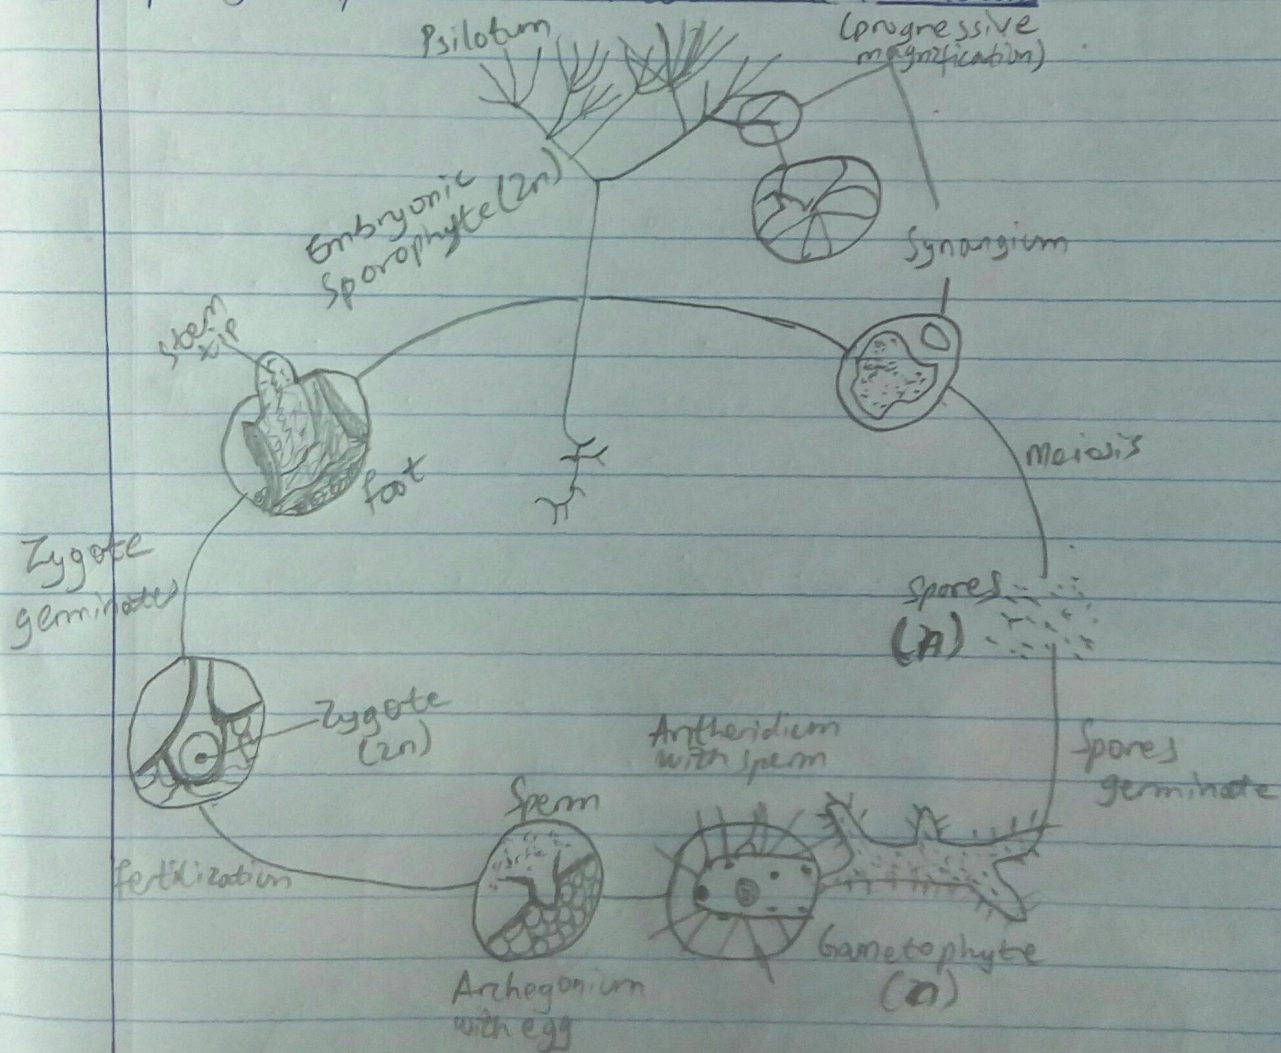 Psilotum
(progressive
magnification)
Embryonic
Sporophyte (2n)
Synangium
Stem
tip
foot
Meiosis
Zygote
germinates
Spores
(n)
Zygote
(2n)
Antheridium
with sperm
Spores
germinate
Sperm
fertilization
Gametophyte
(n)
Archegonium
with egg